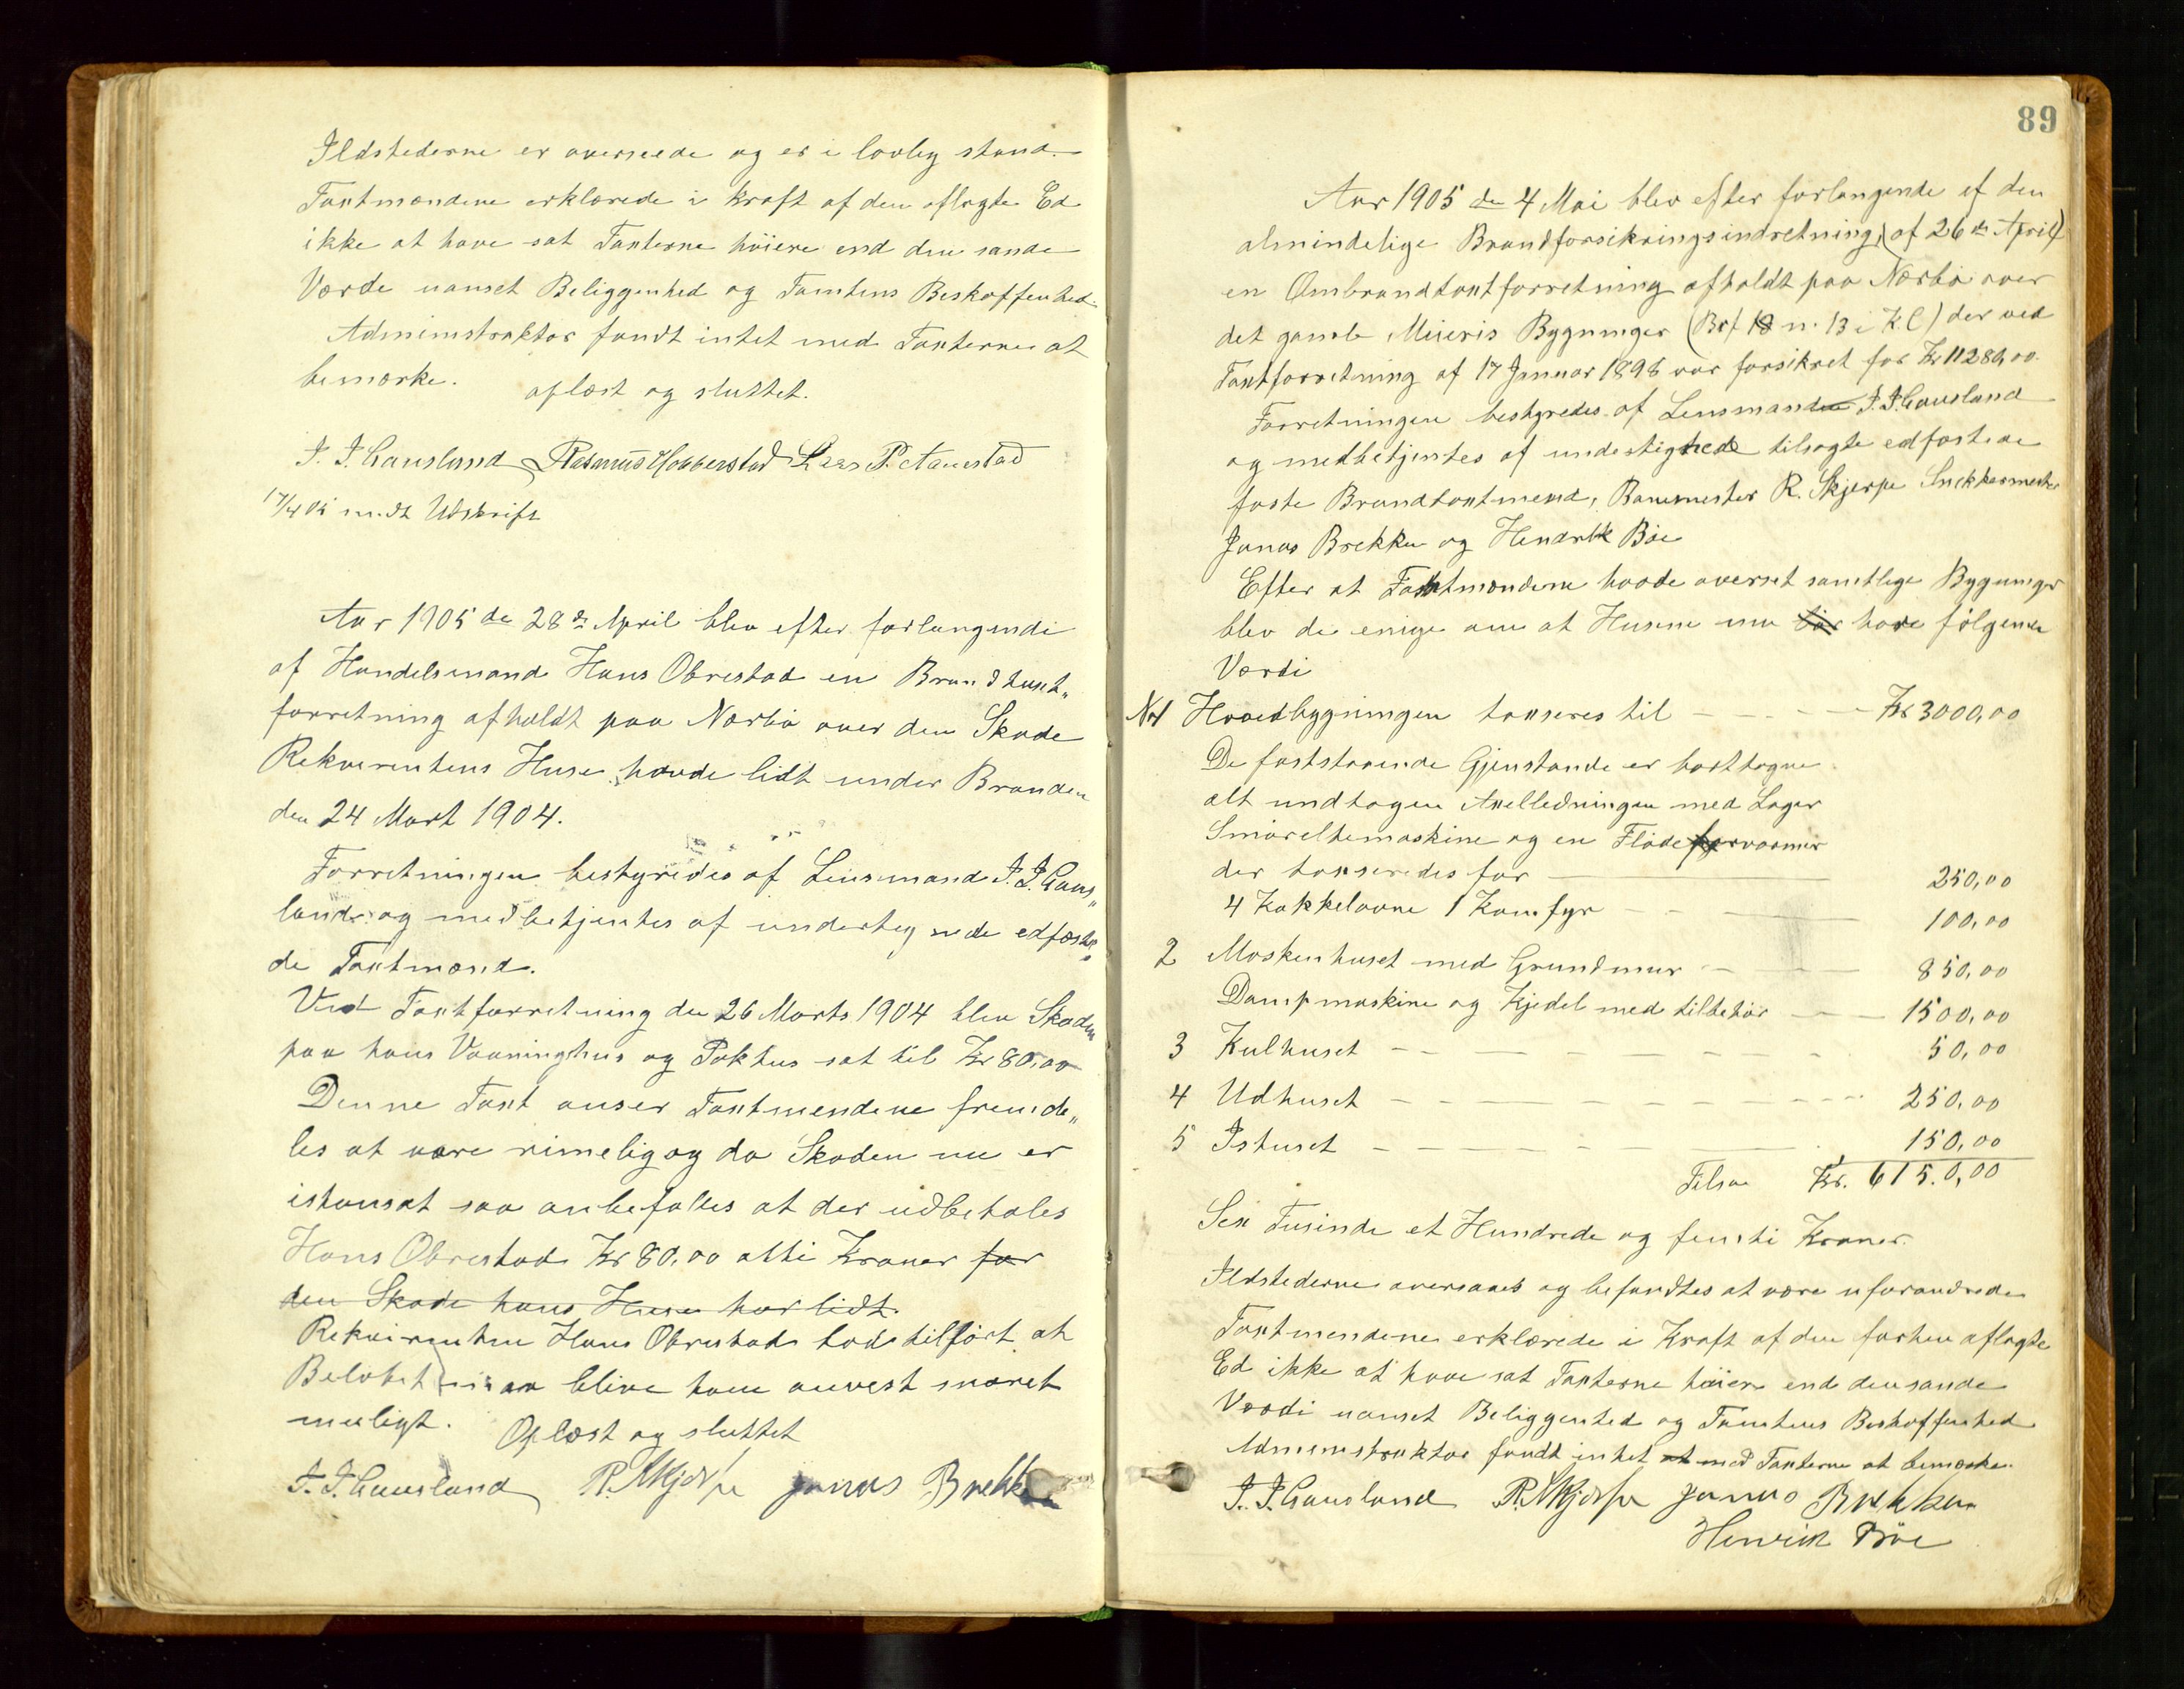 Ildstederne er overseede og er i lovlig stand.
Taxtmændene erklærede i kraft af den aflagte Ed
ikke at have sat Taxterne höiere end den sande
Værde uanset Beliggenhed og Tomtens Beskaffenhed.
Administraktor fandt intet med Taxterne at
bemærke. oplæst og sluttet.
J. J. Gausland Rasmus Hobberstad Lars P. Aanestad
17/4 05 Udskrift
Aar 1905 den 28de April blev efter forlangende
af Handelsmand Hans Obrestad en Brandtaxt„
forretning afholdt paa Nærbö over den Skade
Rekvirentens Huse havde lidt under Branden
den 24 Mart 1904.
Forretningen bestyredes af Lensmand J. J. Gaus„
land og medbetjentes af undertegnede edfæste„
de Taxtmænd.
Ved Taxtforretning den 26 Marts 1904 blev Skaden
paa hans Vaaningshus og Pakhus sat til Kr 80,00
Denne Taxt anser Taxtmendene fremde„
les at være rimelig og da Skaden nu er
istansat saa anbefalles at der udbetales
Hans Obrestad Kr 80,00 otti Kroner for
den Skade hans Huse har lidt.
Rekvirenten Hans Obrestad lod tilført at
Beløbet maa blive ham anvest snarest
muligt. Oplæst og sluttet
J. J. Gausland R. Skjerpe Jonas Brekken
89
Aar 1905 den 4 Mai blev efter forlangende af den
almindelige Brandforsikringsindretning, (af 26de April)
en Ombrandtaxtforretning afholdt paa Nærbö over
det gamle Meieris Bygninger (Brf 18 n. 13 i K C) der ved
Taxtforretning af 17 Januar 1898 var forsikret for Kr 11280,00
Forretningen bestyredes af Lensmanden J. J. Gausland
og medbetjentes af undertegnede tilsagte edfæstede
faste Brandtaxtmend, Banemester R. Skjerpe Snekkermester
Jonas Brekken og Hendrik Böe
Efter at Taxtmændene havde overset samtlige Bygninger
blev de enige om at Husene nu bør have følgende
Værdi
No 1 Hovedbygningen taxseres til Kr 3000,00
De faststaaende Gjenstande er borttagne
alt undtagen Axelledningen med Lager
Smøreltemaskine og en Fløde forvarmer
der taxseredes for 250,00
4 Kakkelovne 1 Komfyr 100,00
2 Maskenhuset med Grundmur 850,00
Dampmaskine og Kjedel med tilbehör 1500,00
3 Kulhuset 50,00
4 Udhuset 250,00
5 Ishuset 150,00
Tilsa Kr. 6150,00
Sex Tusinde et Hundrede og femti Kroner.
Ildstederne oversaaes og befandtes at være uforandrede
Taxtmendene erklærede i Kraft af den forhen aflagte
Ed ikke at have sat Taxterne høiere end den sande
Værdi uanset Beliggenhed og Tomtens Beskaffenhed
Administraktor fandt intet at med Taxterne at bemærke.
J. J. Gausland R. Skjerpe Jonas Brekken
Henrik Böe